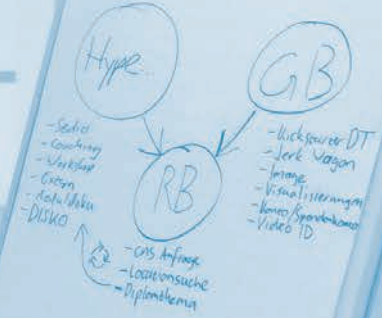 Hype
GB
RB
- Coaching
- Workshop
- Extern
- DISKO
- Kickstarter DT
- Jerk Wagon
- Image
- Visualisierungen
- Konto/Spendenkonto
- Video ID
- CMS Anfrage
- Locationsuche
- Diplomthema